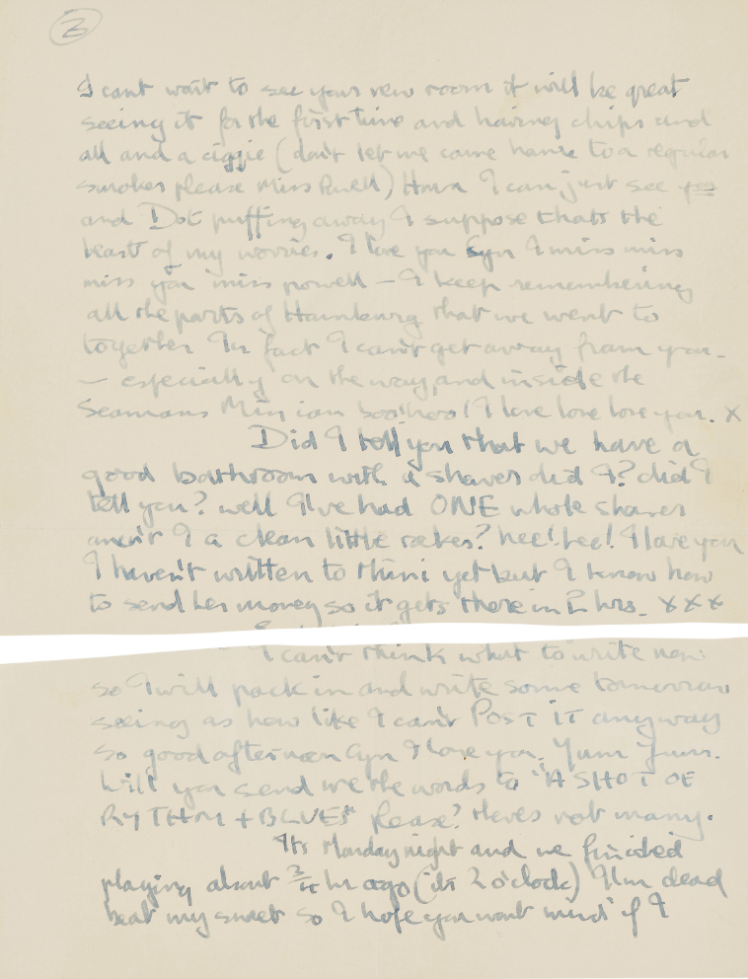 3
I cant wait to see your new room it will be great
seeing it for the first time and having chips and
all and a ciggie (don't let me come home to a regular
smoker please Miss Powell) Hmm I can just see you
and Dot puffing away I suppose thats the
least of my worries. I love you Cyn I miss miss
miss you miss powell — I keep remembering
all the parts of Hamburg that we went to
together In fact I can't get away from you -
— especially on the way, and inside the
Seamans Mission boo!hoo! I love love love you. X
Did I tell you that we have a
good bathroom with a shower did I? did I
tell you? well I've had ONE whole shower
aren't I a clean little raker? hee! hee! I love you
I haven't written to Mimi yet but I know how
to send her money so it gets there in 2 hrs. X X X
I can't think what to write now
so I will pack in and write some tomorrow
seeing as how like I can't POST IT anyway
so good afternoon Cyn I love you. Yum Yum.
Will you send me the words to "A SHOT OF
RYTHM + BLUES" Please? theres not many.
Its Monday night and we finished
playing about 3/4 hr ago (its 2 o'clock) I'm dead
beat my sweet so I hope you wont mind if I